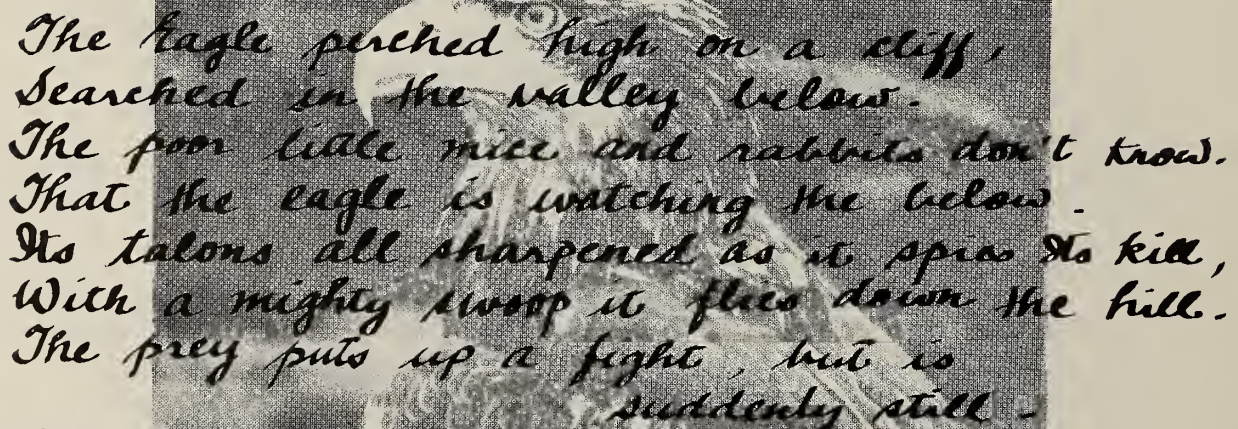 The Eagle perched high on a cliff,
Searched in the valley below.
The poor little mice and rabbits don't know.
That the eagle is watching the below.
Its talons all sharpened as it spies Its kill,
With a mighty swoop it flies down the hill.
The prey puts up a fight, but is
suddenly still -